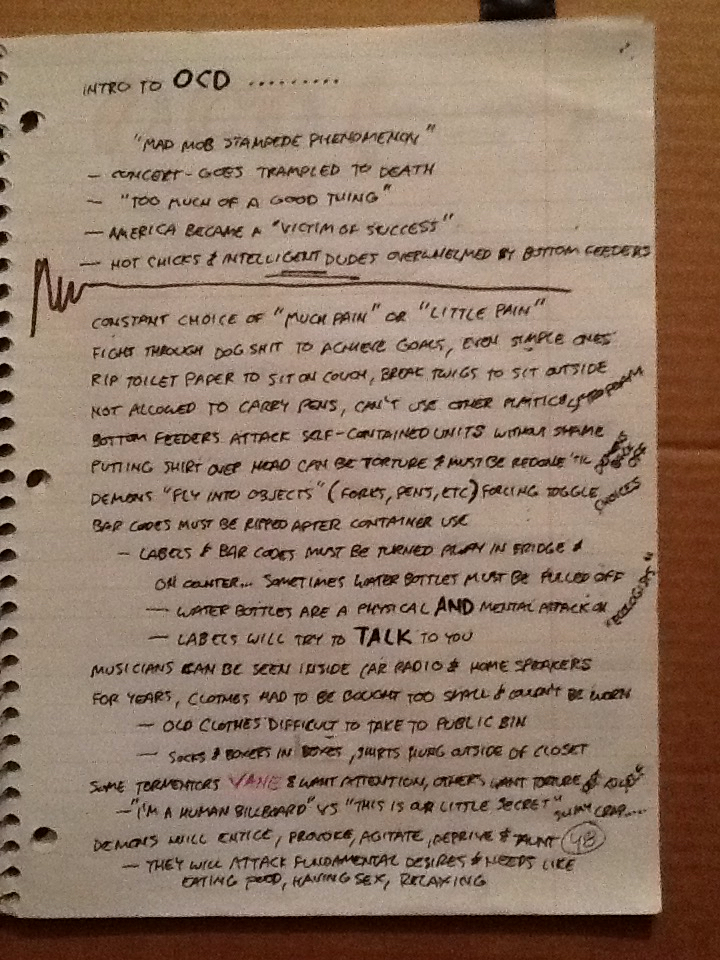 INTRO TO OCD .........
"MAD MOB STAMPEDE PHENOMENON"
– CONCERT-GOES TRAMPLED TO DEATH
– "TOO MUCH OF A GOOD THING"
– AMERICA BECAME A "VICTIM OF SUCCESS"
– HOT CHICKS & INTELLIGENT DUDES OVERWHELMED BY BOTTOM FEEDERS
CONSTANT CHOICE OF "MUCH PAIN" OR "LITTLE PAIN"
FIGHT THROUGH DOG SHIT TO ACHIEVE GOALS, EVEN SIMPLE ONES
RIP TOILET PAPER TO SIT ON COUCH, BREAK TWIGS TO SIT OUTSIDE
NOT ALLOWED TO CARRY PENS, CAN'T USE OTHER PLASTIC
BOTTOM FEEDERS ATTACK SELF-CONTAINED UNITS WITHOUT SHAME
PUTTING SHIRT OVER HEAD CAN BE TORTURE & MUST BE REDONE 'TIL
DEMONS "FLY INTO OBJECTS" (FORKS, PENS, ETC) FORCING TOGGLE CHOICES
BAR CODES MUST BE RIPPED AFTER CONTAINER USE
– LABELS & BAR CODES MUST BE TURNED AWAY IN FRIDGE &
ON COUNTER... SOMETIMES WATER BOTTLES MUST BE PULLED OFF
– WATER BOTTLES ARE A PHYSICAL AND MENTAL ATTACK ON "ECOLOGISTS"
– LABELS WILL TRY TO TALK TO YOU
MUSICIANS CAN BE SEEN INSIDE CAR RADIO & HOME SPEAKERS
FOR YEARS, CLOTHES HAD TO BE BOUGHT TOO SMALL & COULDN'T BE WORN
– OLD CLOTHES DIFFICULT TO TAKE TO PUBLIC BIN
– SOCKS & BOXERS IN BOXES, SHIRTS HUNG OUTSIDE OF CLOSET
SOME TORMENTORS VANE & WANT ATTENTION, OTHERS WANT TORTURE &
– "I'M A HUMAN BILLBOARD" VS "THIS IS OUR LITTLE SECRET" CRAP....
DEMONS WILL ENTICE, PROVOKE, AGITATE, DEPRIVE & TAUNT 48
– THEY WILL ATTACK FUNDAMENTAL DESIRES & NEEDS LIKE
EATING FOOD, HAVING SEX, RELAXING